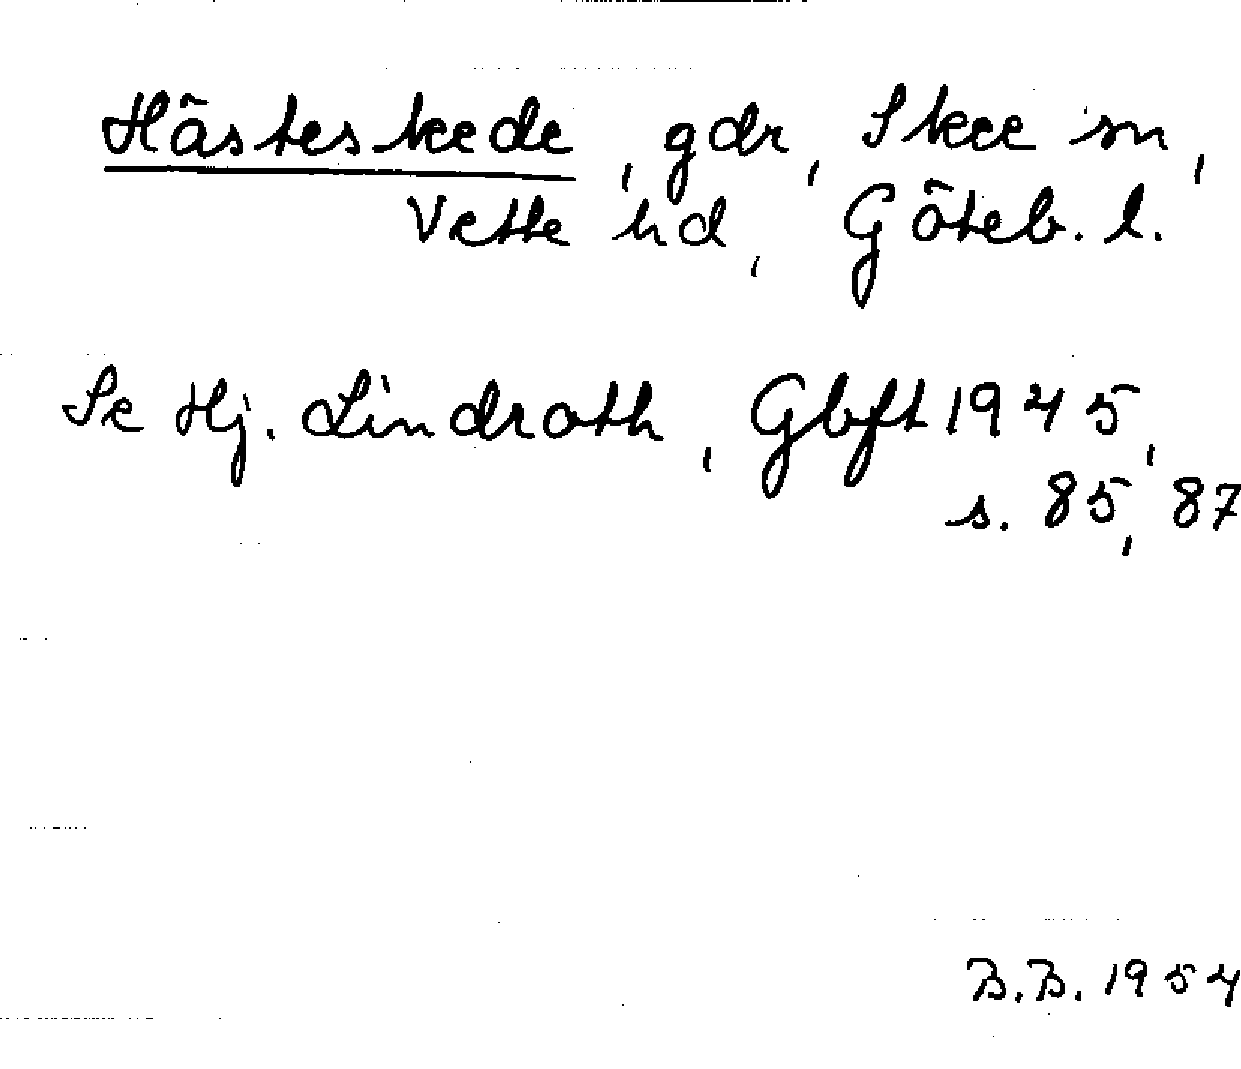 Hästeskede, gdr, Skee sn,
Vette hd, Göteb. l.
Se Hj. Lindroth, Gbft 1945,
s. 85, 87
B.B. 1954